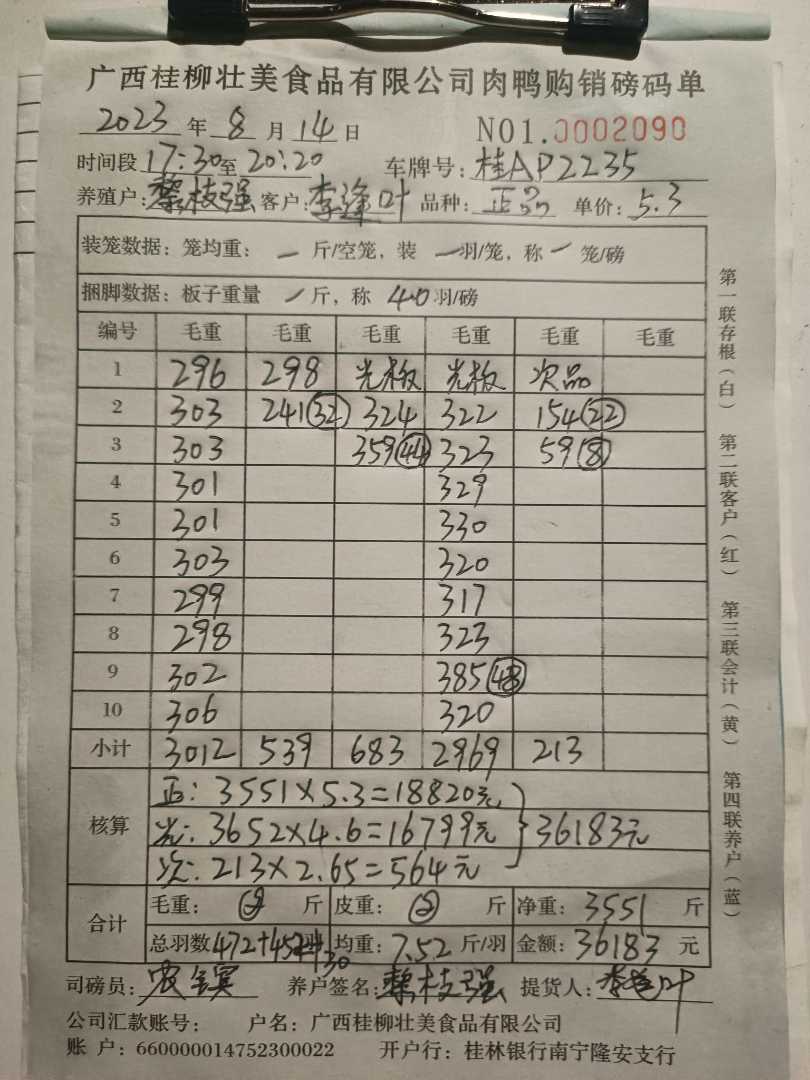 广西桂柳壮美食品有限公司肉鸭购销磅码单
2023 年 8 月 14 日 NO1.0002090
时间段 17:30 至 20:20 车牌号: 桂AP2235
养殖户: 黎枝强 客户: 李逢叶 品种: 正品 单价: 5.3
装笼数据: 笼均重: 一 斤/空笼, 装 一 羽/笼, 称 一 笼/磅
捆脚数据: 板子重量 一 斤, 称 40 羽/磅
编号 毛重 毛重 毛重 毛重 毛重 毛重
1 296 298 光板 光板 次品
2 303 241(32) 324 322 154(22)
3 303 359(44) 323 59(8)
4 301 329
5 301 330
6 303 320
7 299 317
8 298 323
9 302 385(48)
10 306 320
小计 3012 539 683 2969 213
核算 正: 3551×5.3=18820元
光: 3652×4.6=16799元 } 36183元
次: 213×2.65=564元
合计 毛重: 斤 皮重: 斤 净重: 3551 斤
总羽数 472+452+30 均重: 7.52 斤/羽 金额: 36183 元
司磅员: 农 养户签名: 黎枝强 提货人: 李逢叶
公司汇款账号: 户名: 广西桂柳壮美食品有限公司
账 户: 660000014752300022 开户行: 桂林银行南宁隆安支行
第一联存根(白) 第二联客户(红) 第三联会计(黄) 第四联养户(蓝)